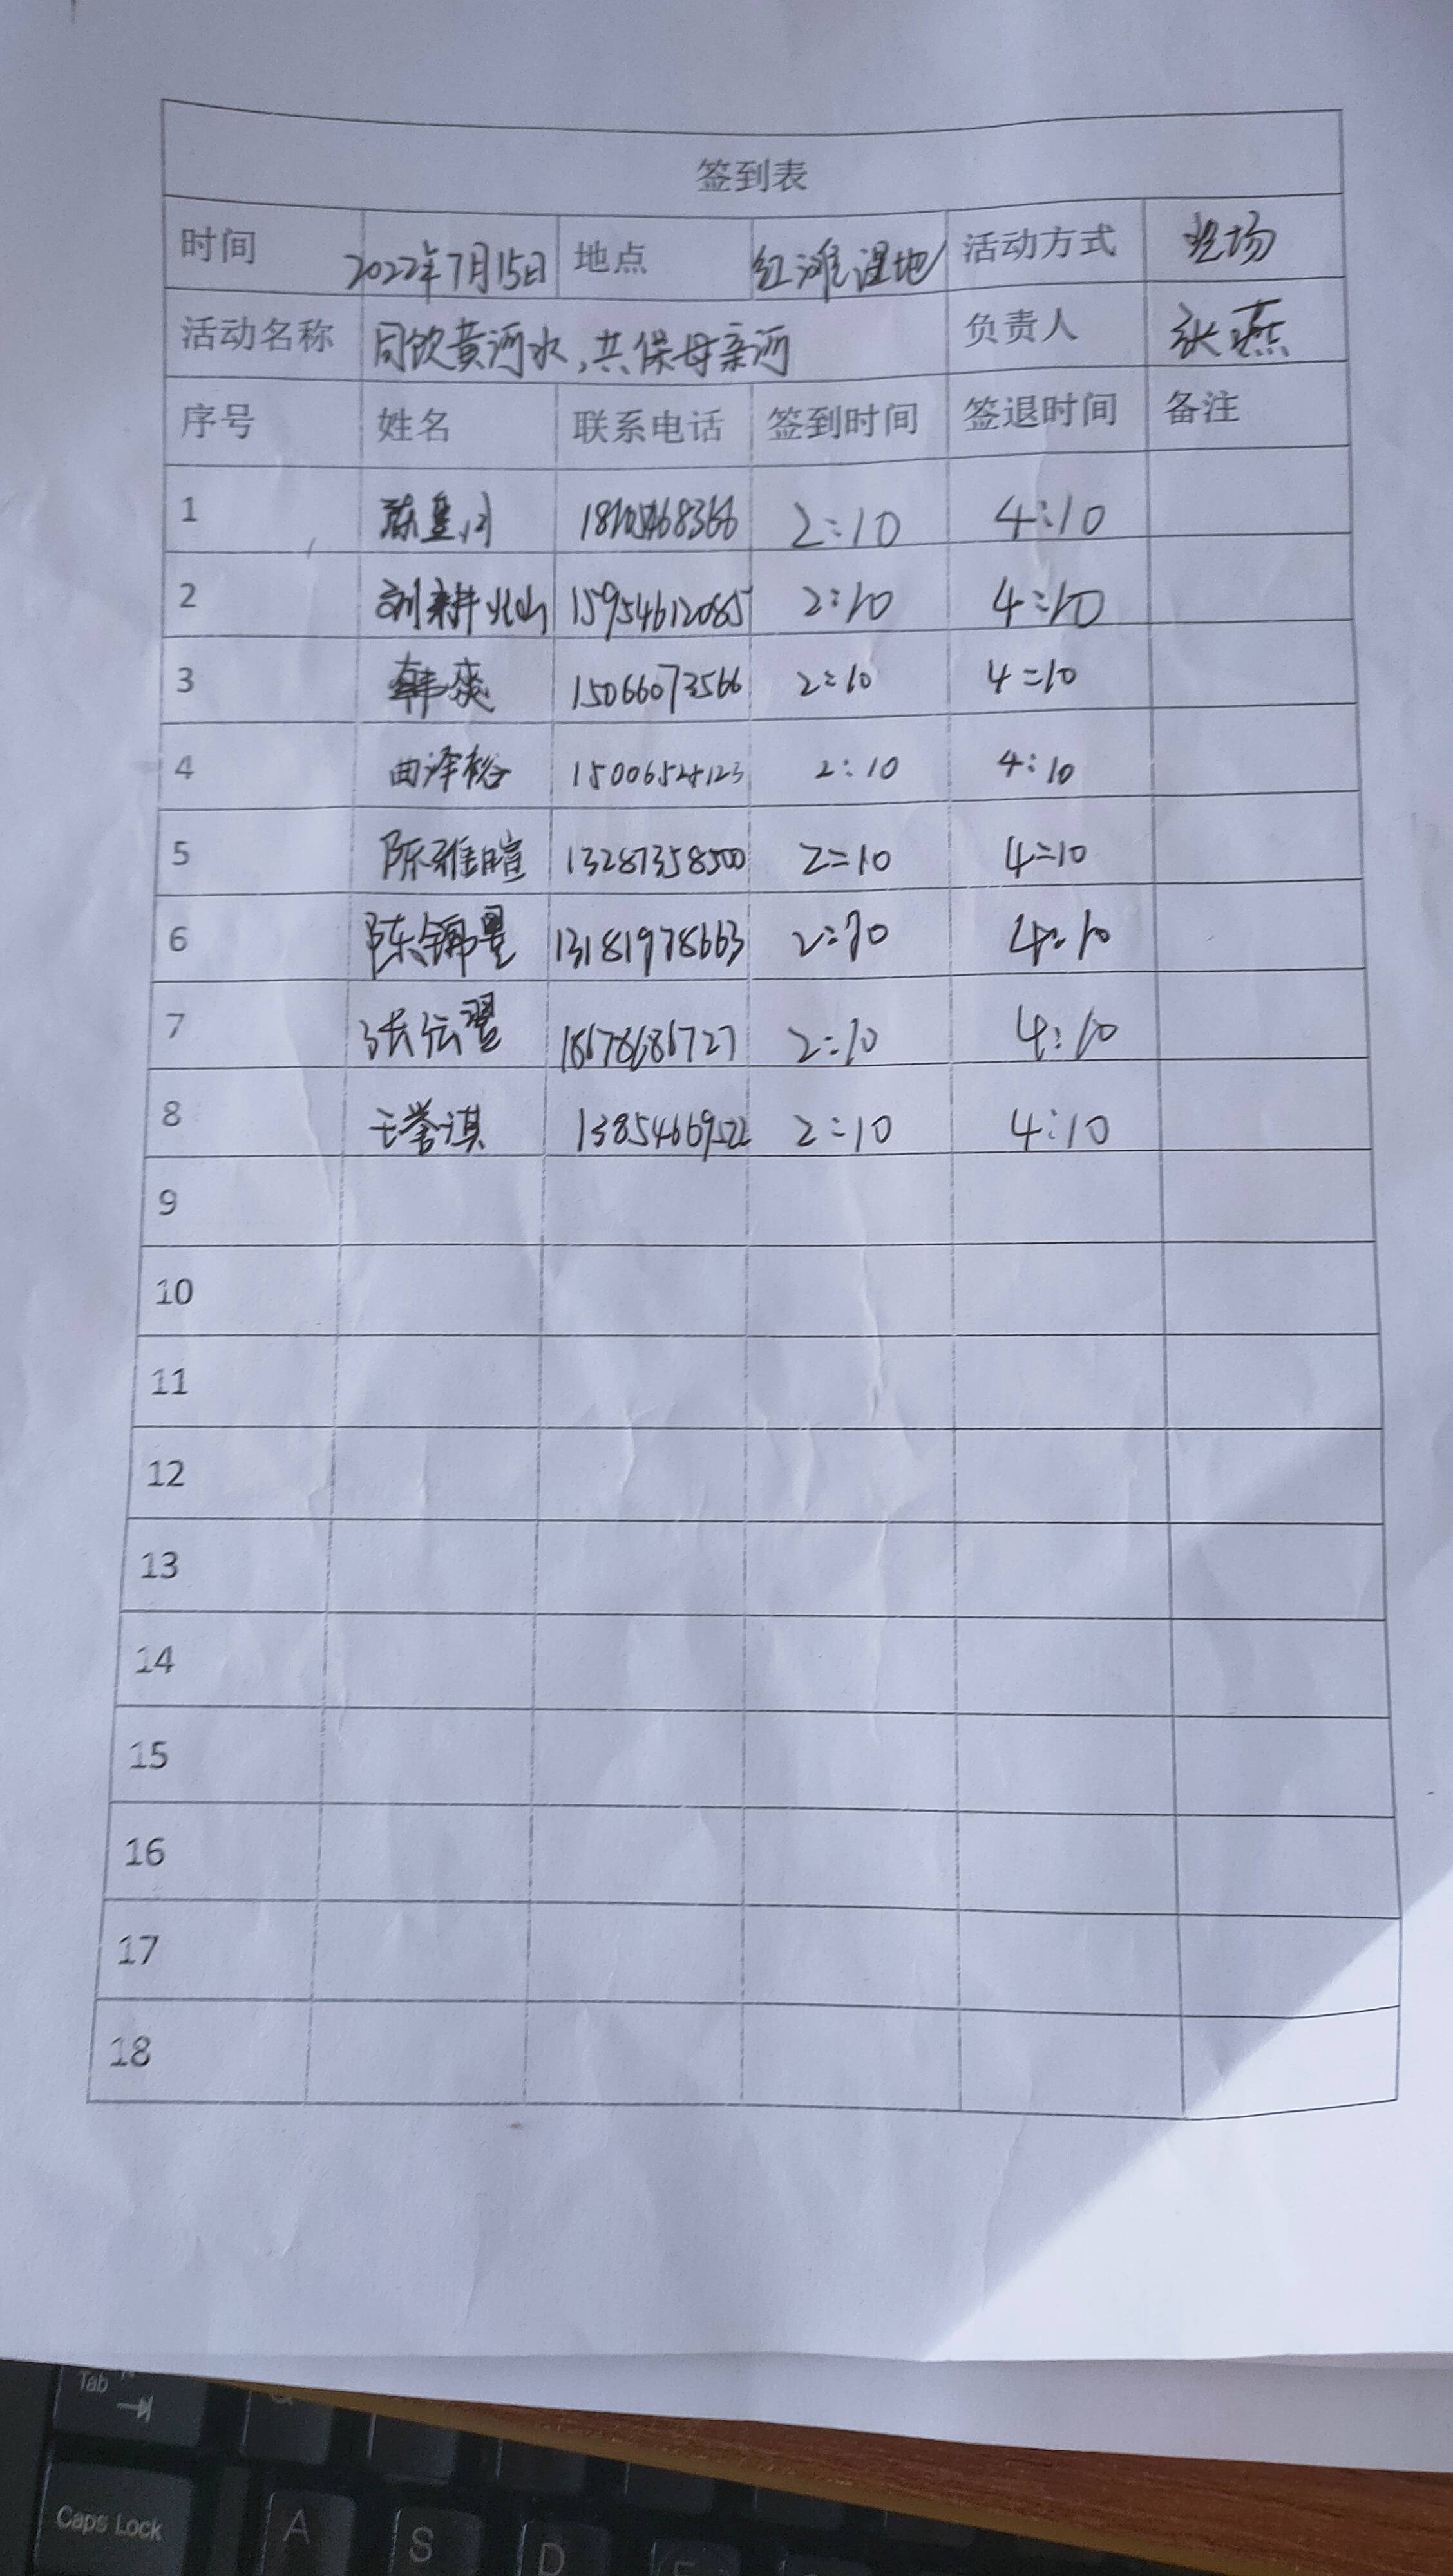 签到表
时间 2022年7月15日 地点 红滩湿地 活动方式 现场
活动名称 同饮黄河水,共保母亲河 负责人 张燕
序号 姓名 联系电话 签到时间 签退时间 备注
1 2:10 4:10
2 15954612085 2:10 4:10
3 韩爽 15066073566 2:10 4:10
4 曲泽裕 15006525123 2:10 4:10
5 陈雅暄 13287358500 2:10 4:10
6 陈锦昱 13181978663 2:10 4:10
7 18678686727 2:10 4:10
8 王誉淇 13854669522 2:10 4:10
9
10
11
12
13
14
15
16
17
18
Tab
Caps Lock
A
S
D